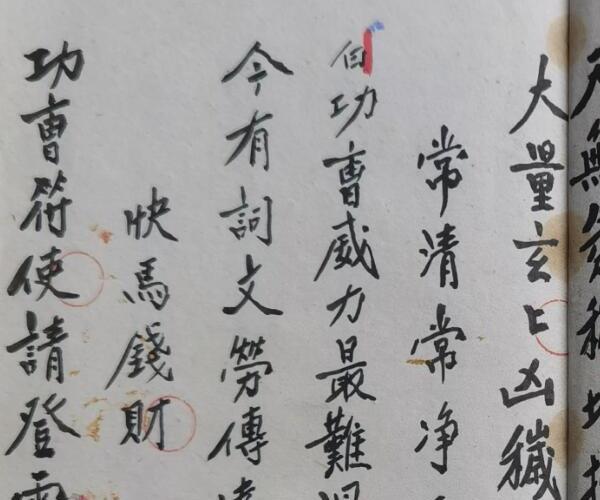 無
大量玄凶穢
常清常净
功曹威力最難
今有詞文勞傳
快馬錢財
功曹符使請登